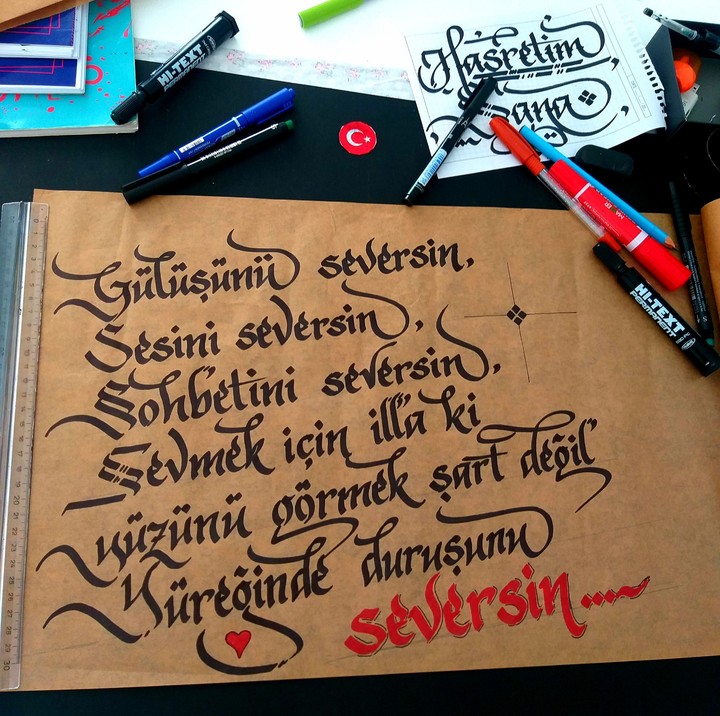 HI-TEXT
PERMANENT
Hasretim
Sana
HI-TEXT
PERMANENT
Gülüşünü seversin,
Sesini seversin,
Sohbetini seversin,
Sevmek için illa ki
yüzünü görmek şart değil
Yüreğinde duruşunu
seversin....~